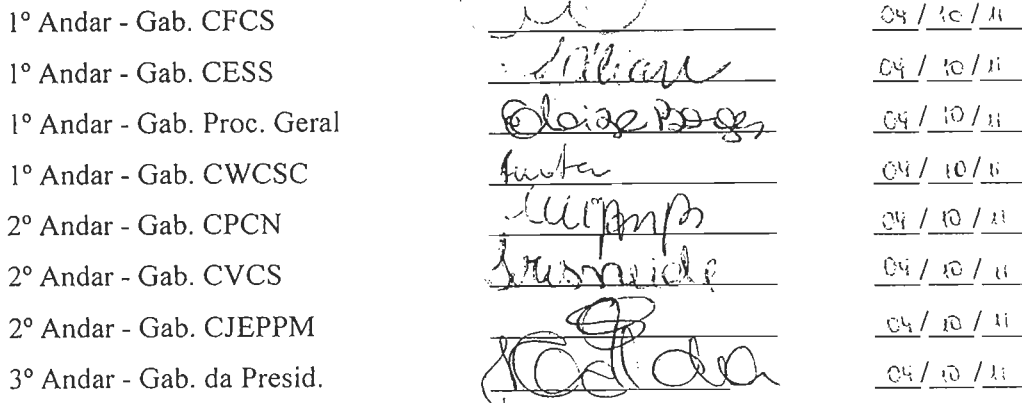 1º Andar - Gab. CFCS 04/10/11
1º Andar - Gab. CESS Lilian 04/10/11
1º Andar - Gab. Proc. Geral 04/10/11
1º Andar - Gab. CWCSC 04/10/11
2º Andar - Gab. CPCN 04/10/11
2º Andar - Gab. CVCS 04/10/11
2º Andar - Gab. CJEPPM 04/10/11
3º Andar - Gab. da Presid. 04/10/11